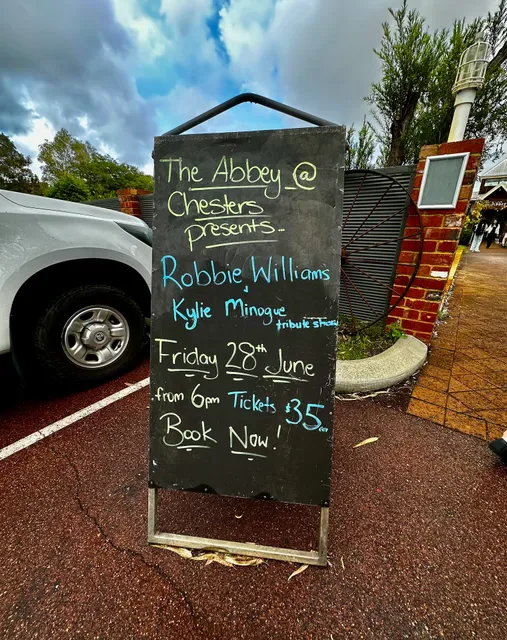 The Abbey @
Chesters
presents..
Robbie Williams
+
Kylie Minogue
tribute shows
Friday 28th June
from 6pm Tickets $35 ea
Book Now!